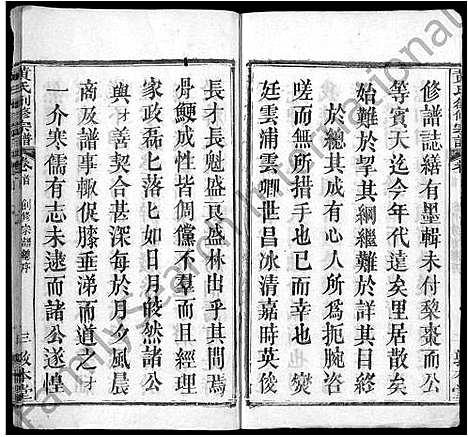 修譜誌繕有墨輯未付黎棗而公
等賓天今世代遠矣里居散矣
始難於舉其綱繼難於詳其目
於總其成有心人所為扼腕咨
嗟而無所措手也已而幸也
廷浦雲卿世昌冰清嘉時英俊
長才長魁盛良盛林出乎其間為
骨鯁成性皆倜儻不羣而且經理
家政磊匕落匕如日月皎然諸公
與予甚深每於月夕風晨
商及譜事輒促膝垂涕而道之
一介寒儒有志未逮而諸公遂慞
黃氏創修宗譜
卷首
創修宗譜總序
三
敦本堂
FamilySearch International